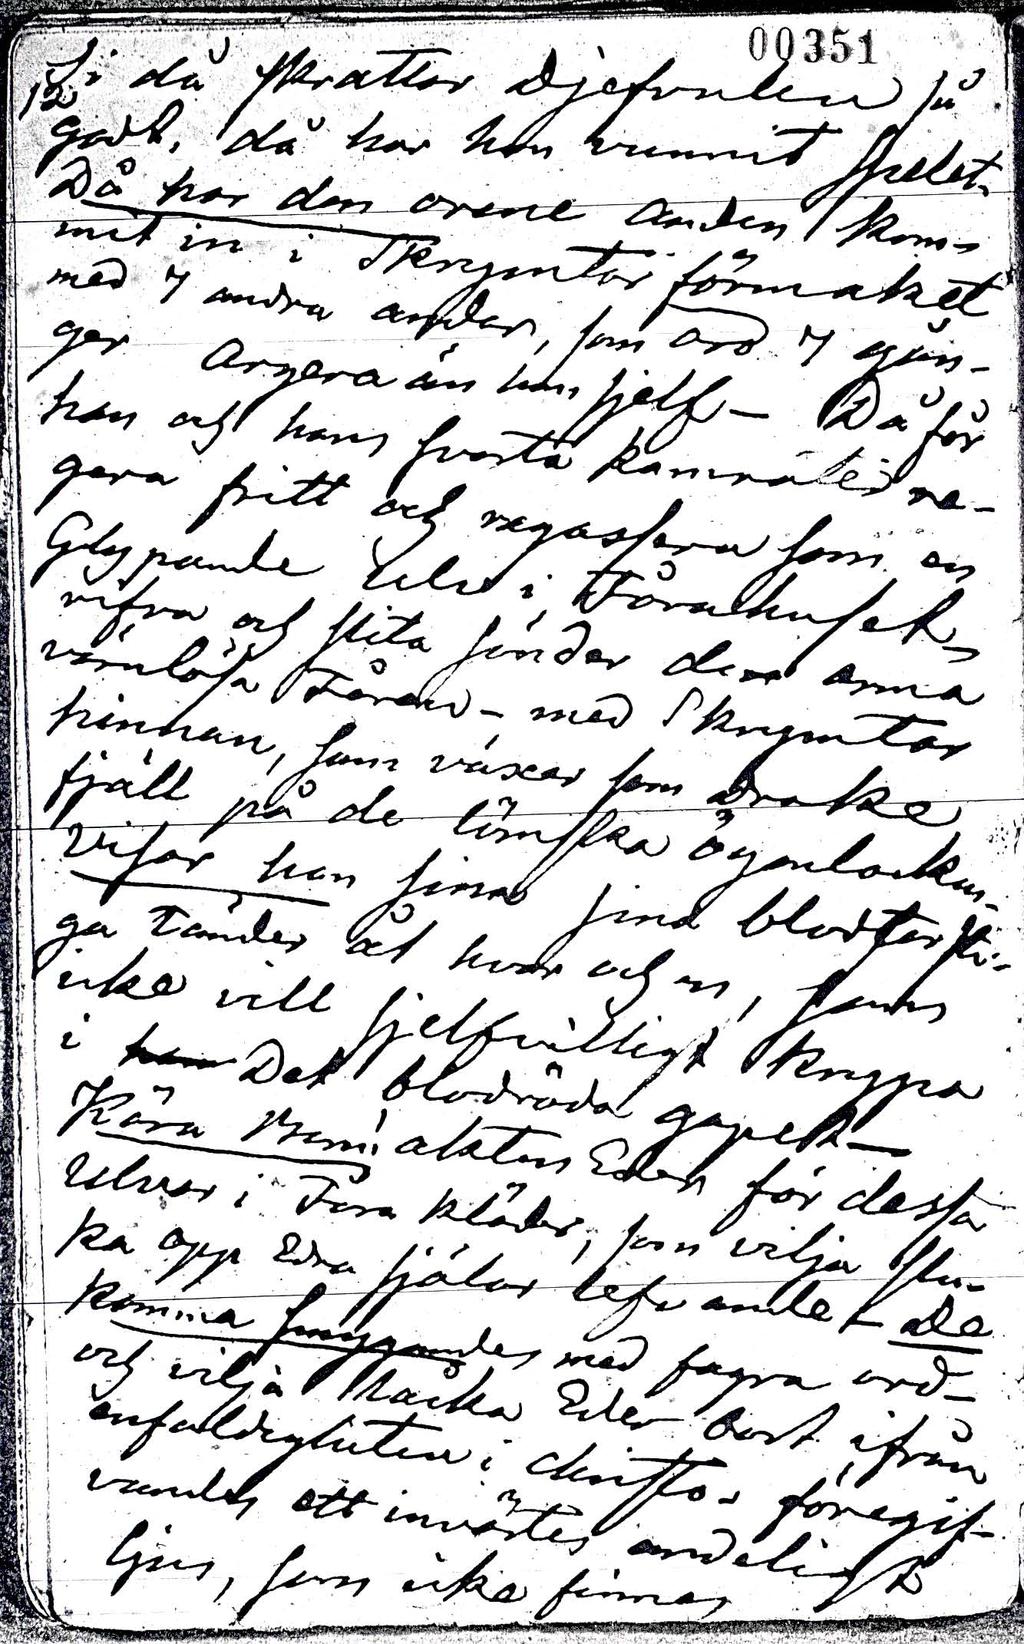 00351
12
Si då skrattar Djefvulen så
godt, då har han vunnit spelet.
Då har den orene anden kom-
mit in i Skrymtar förmaket
med 7 andra andar, som äro 7 gån-
ger argera än han sjelf – Då får
han och hans svarta kamrater re-
gera fritt och regassera som en
Glupande Ulv i Fårahuset,
rifva och slita sönder de arma
värnlösa Fåren – med Skrymtar
hinnan, som växer som Drake
fjäll på de lömska ögonlocken,
visar han sina blodtörsti-
ga Tänder åt hvar och en, som
icke vill sjelfvilligt krypa
i Det blodröda gapet –
Kära Barn! akten Eder för dessa
Ulvar i Fåra kläder, som vilja slu-
ka opp Edra själar lefvande – De
komma smygandes med fagra ord –
och vilja Eder bort ifrån
enfaldigheten i Christo – föregif-
vandes ett invärtes andeligt
ljus, som icke finnes